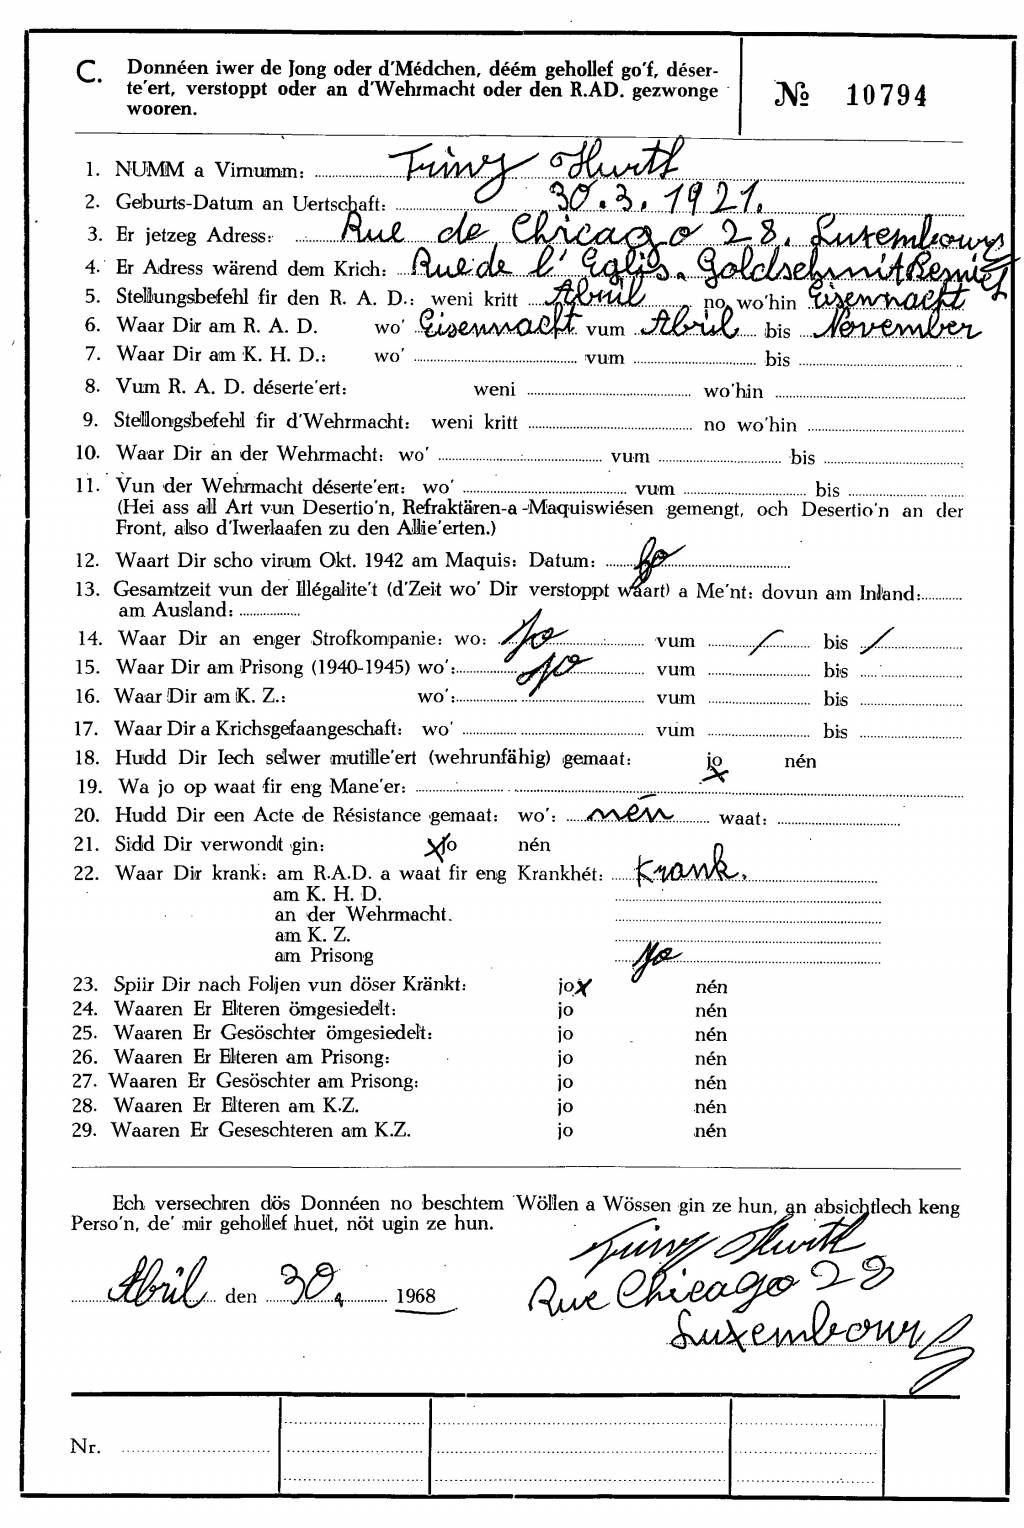 C. Donnéen iwer de Jong oder d'Médchen, déém gehollef go'f, déser-
te'ert, verstoppt oder an d'Wehrmacht oder den R.AD. gezwonge
wooren.
№ 10794
1. NUMM a Virnumm: Triny Hurth
2. Geburts-Datum an Uertschaft: 30.3.1921.
3. Er jetzeg Adress: Rue de Chicago 28. Luxembourg
4. Er Adress wärend dem Krich: Rue de l'Eglis. Goldschmit Bernies
5. Stellungsbefehl fir den R. A. D.: weni kritt Abril no wo'hin Eisennacht
6. Waar Dir am R. A. D. wo' Eisennacht vum Abril bis November
7. Waar Dir am K. H. D.: wo' vum bis
8. Vum R. A. D. déserte'ert: weni wo'hin
9. Stellongsbefehl fir d'Wehrmacht: weni kritt no wo'hin
10. Waar Dir an der Wehrmacht: wo' vum bis
11. Vun der Wehrmacht déserte'ert: wo' vum bis
(Hei ass all Art vun Desertio'n, Refraktären-a-Maquiswiésen gemengt, och Desertio'n an der
Front, also d'Iwerlaafen zu den Allie'erten.)
12. Waart Dir scho virum Okt. 1942 am Maquis: Datum: Jo
13. Gesamtzeit vun der Illégalite't (d'Zeit wo' Dir verstoppt waart) a Me'nt: dovun am Inland:
am Ausland:
14. Waar Dir an enger Strofkompanie: wo: Jo vum / bis /
15. Waar Dir am Prisong (1940-1945) wo': Jo vum bis
16. Waar Dir am K. Z.: wo': vum bis
17. Waar Dir a Krichsgefaangeschaft: wo' vum bis
18. Hudd Dir Iech selwer mutille'ert (wehrunfähig) gemaat: jo x nén
19. Wa jo op waat fir eng Mane'er:
20. Hudd Dir een Acte de Résistance gemaat: wo': nén waat:
21. Sidd Dir verwondt gin: x jo nén
22. Waar Dir krank: am R.A.D. a waat fir eng Krankhét: Krank.
am K. H. D.
an der Wehrmacht.
am K. Z.
am Prisong Jo
23. Spiir Dir nach Foljen vun döser Kränkt: jo x nén
24. Waaren Er Elteren ömgesiedelt: jo nén
25. Waaren Er Gesöschter ömgesiedelt: jo nén
26. Waaren Er Elteren am Prisong: jo nén
27. Waaren Er Gesöschter am Prisong: jo nén
28. Waaren Er Elteren am K.Z. jo nén
29. Waaren Er Geseschteren am K.Z. jo nén
Ech versechren dös Donnéen no beschtem Wöllen a Wössen gin ze hun, an absichtlech keng
Perso'n, de' mir gehollef huet, nöt ugin ze hun.
Triny Hurth
Abril den 30. 1968
Rue Chicago 28
Luxembourg
Nr.